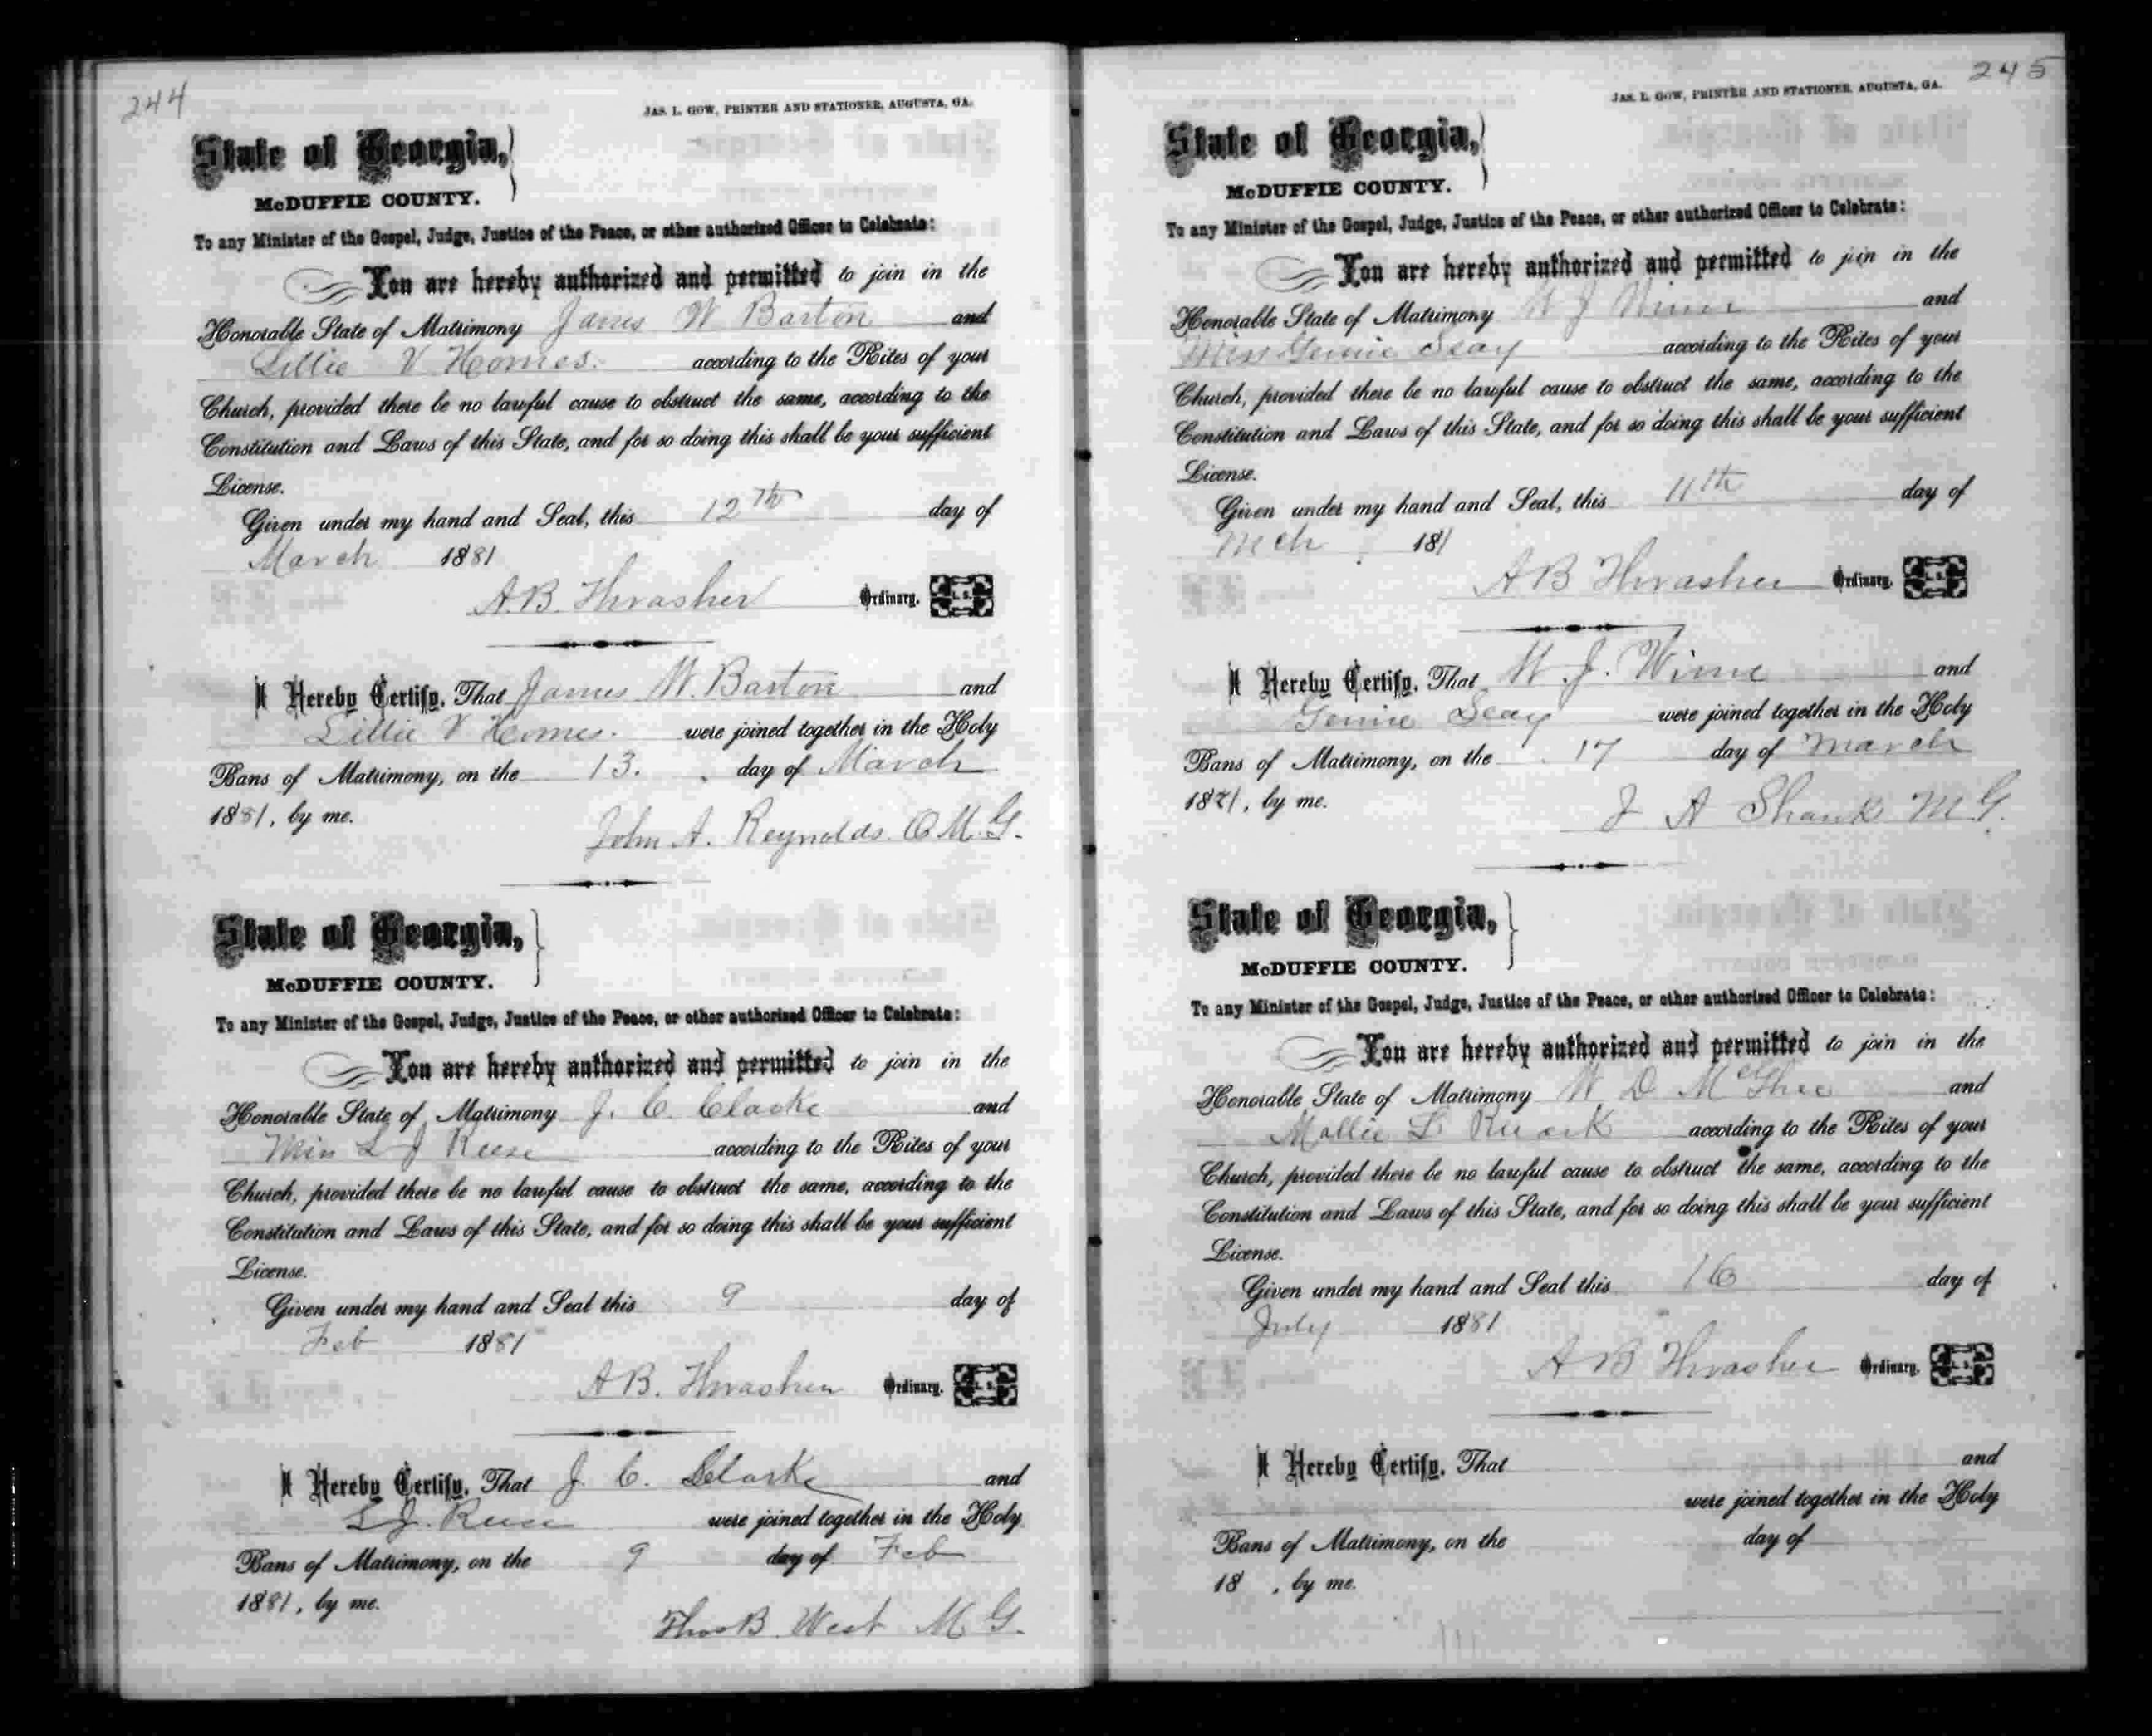 244
JAS. L. GOW, PRINTER AND STATIONER, AUGUSTA, GA.
State of Georgia,
McDUFFIE COUNTY.
To any Minister of the Gospel, Judge, Justice of the Peace, or other authorized Officer to Celebrate:
You are hereby authorized and permitted to join in the
Honorable State of Matrimony James W Barton and
Lillie V Homes. according to the Rites of your
Church, provided there be no lawful cause to obstruct the same, according to the
Constitution and Laws of this State, and for so doing this shall be your sufficient
License.
Given under my hand and Seal, this 12th day of
March 1881
A.B. Thrasher Ordinary. L. S.
I Hereby Certify, That James W. Barton and
Lillie V Homes. were joined together in the Holy
Bans of Matrimony, on the 13. day of March
1881, by me.
John A. Reynolds. O.M.G.
State of Georgia,
McDUFFIE COUNTY.
To any Minister of the Gospel, Judge, Justice of the Peace, or other authorized Officer to Celebrate:
You are hereby authorized and permitted to join in the
Honorable State of Matrimony J. C. Clarke and
Miss L J Reese according to the Rites of your
Church, provided there be no lawful cause to obstruct the same, according to the
Constitution and Laws of this State, and for so doing this shall be your sufficient
License.
Given under my hand and Seal this 9 day of
Feb 1881
A B. Thrasher Ordinary. L. S.
I Hereby Certify, That J. C. Clarke and
L J. Reese were joined together in the Holy
Bans of Matrimony, on the 9 day of Feb
1881, by me.
Thos B. West M G.
245
JAS. L. GOW, PRINTER AND STATIONER, AUGUSTA, GA.
State of Georgia,
McDUFFIE COUNTY.
To any Minister of the Gospel, Judge, Justice of the Peace, or other authorized Officer to Celebrate:
You are hereby authorized and permitted to join in the
Honorable State of Matrimony W J Winne and
Miss Genie Seay according to the Rites of your
Church, provided there be no lawful cause to obstruct the same, according to the
Constitution and Laws of this State, and for so doing this shall be your sufficient
License.
Given under my hand and Seal, this 11th day of
Mch 181
A B Thrasher Ordinary. L. S.
I Hereby Certify, That W. J. Winne and
Genie Seay were joined together in the Holy
Bans of Matrimony, on the 17 day of March
1881, by me.
J A Shank M G.
State of Georgia,
McDUFFIE COUNTY.
To any Minister of the Gospel, Judge, Justice of the Peace, or other authorized Officer to Celebrate:
You are hereby authorized and permitted to join in the
Honorable State of Matrimony W D McGhee and
Mollie L Ruark according to the Rites of your
Church, provided there be no lawful cause to obstruct the same, according to the
Constitution and Laws of this State, and for so doing this shall be your sufficient
License.
Given under my hand and Seal this 16 day of
July 1881
A B Thrasher Ordinary. L. S.
I Hereby Certify, That and
were joined together in the Holy
Bans of Matrimony, on the day of
18 , by me.